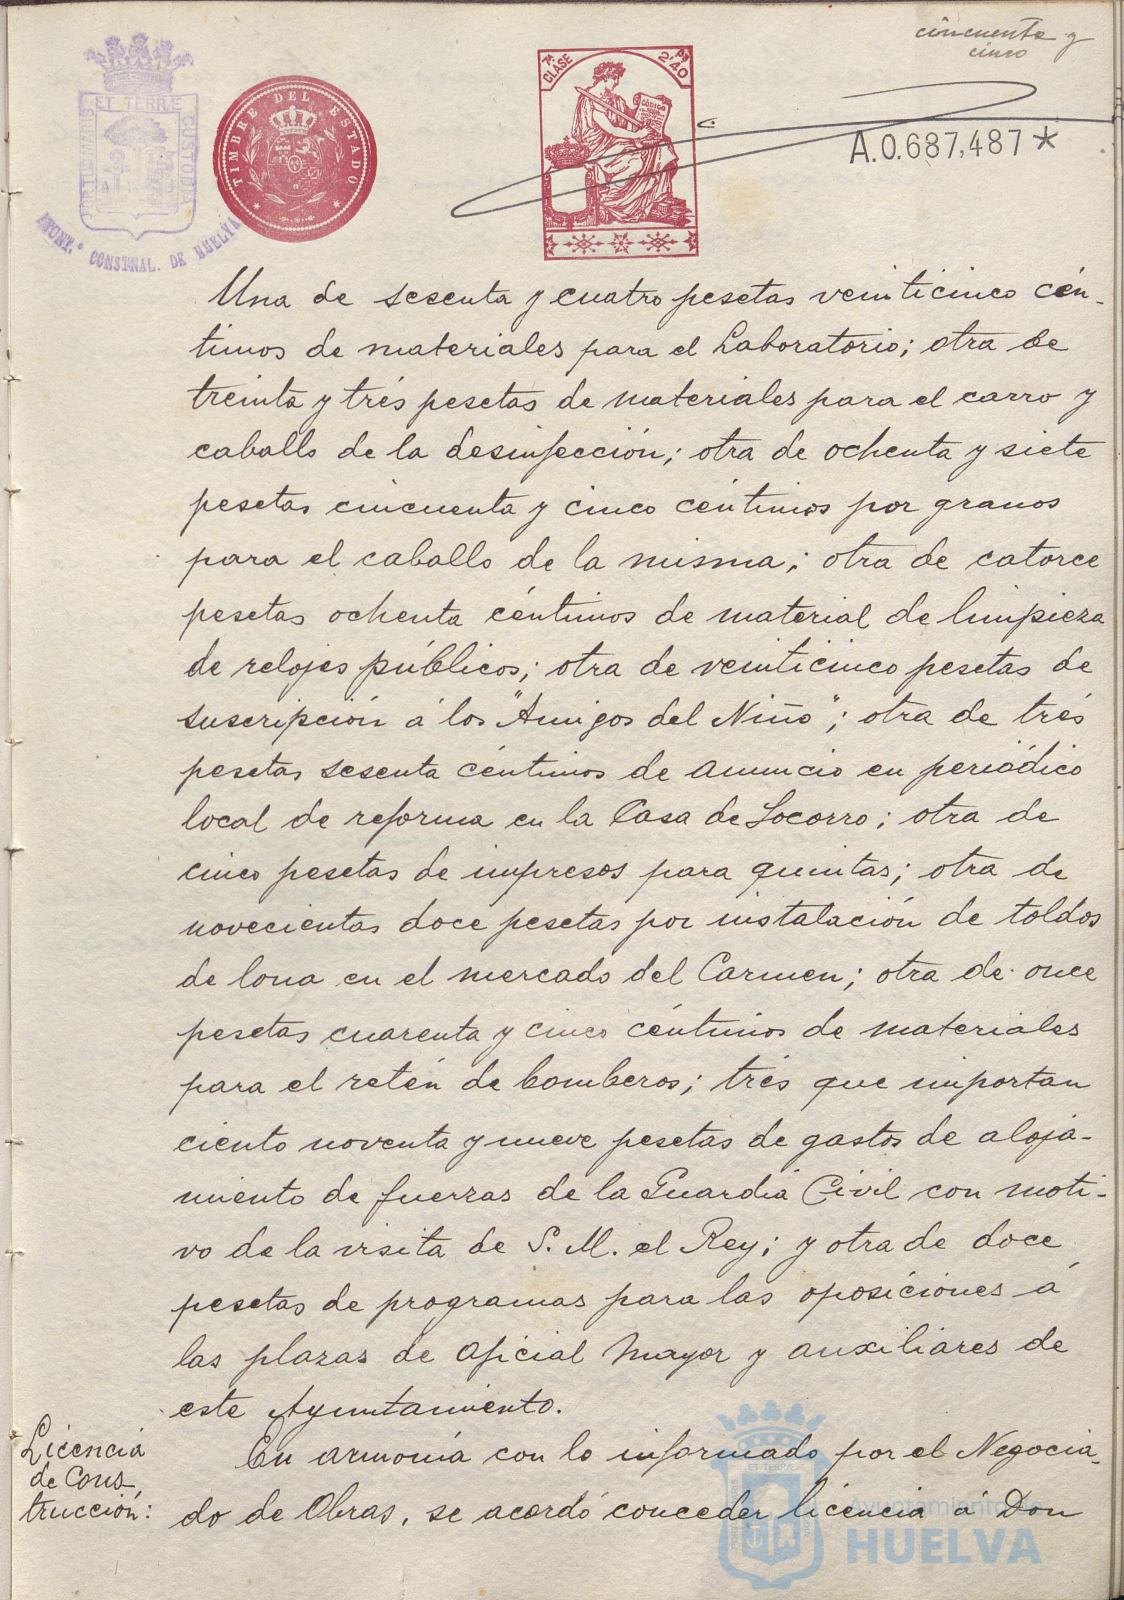 cincuenta y
cinco
PORTUS MARIS ET TERRÆ CUSTODIA
AYUNT.º CONSTNAL. DE HUELVA
TIMBRE DEL ESTADO
7ª CLASE
2'40 Pts
CÓDIGO
A.0.687,487*
Una de sesenta y cuatro pesetas veinticinco cén-
timos de materiales para el Laboratorio; otra de
treinta y trés pesetas de materiales para el carro y
caballo de la desinfección; otra de ochenta y siete
pesetas cincuenta y cinco céntimos por granos
para el caballo de la misma; otra de catorce
pesetas ochenta céntimos de material de limpieza
de relojes públicos; otra de veinticinco pesetas de
suscripción á los "Amigos del Niño"; otra de trés
pesetas sesenta céntimos de anuncio en periódico
local de reforma en la Casa de Socorro; otra de
cinco pesetas de impresos para quintas; otra de
novecientas doce pesetas por instalación de toldos
de lona en el mercado del Carmen; otra de once
pesetas cuarenta y cinco céntimos de materiales
para el retén de bomberos; trés que importan
ciento noventa y nueve pesetas de gastos de aloja-
miento de fuerzas de la Guardia Civil con moti-
vo de la visita de S. M. el Rey; y otra de doce
pesetas de programas para las oposiciones á
las plazas de oficial mayor y auxiliares de
este Ayuntamiento.
Licencia
de Cons_
trucción:
En armonía con lo informado por el Negocia_
do de Obras, se acordó conceder licencia á Don
Ayuntamiento de
HUELVA